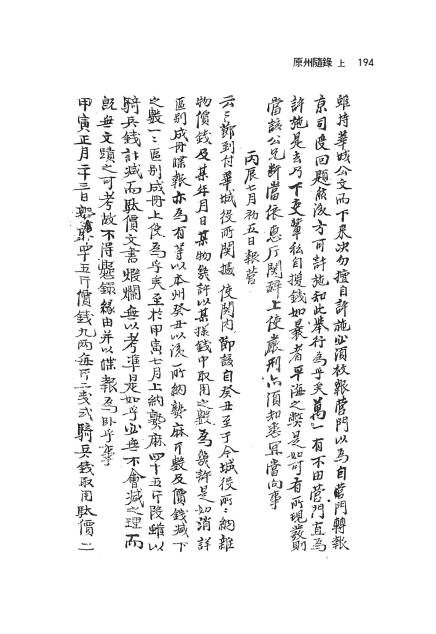 原州隨錄 上 194
雖持華城公文而下來決勿擅自許施必須枚報營門以為自營門轉報
京司度回題然後方可許施知此舉行為乎矣萬一有不由營門直為
許施是去乃下吏輩私自撥錢如曩者平海之弊是如可有所現發則
當該公兄斷當依惠廳關辭上使嚴刑亦須知悉宜當向事
丙辰七月初五日報營
云云節到付華城役所關據使關內節該自癸丑至于今城役所所納雜
物價錢及某年月日某物幾許以某樣錢中取用之數為幾許是如消詳
區別成冊牒報亦為有等以本州癸丑以後所納熟麻斤數及價錢減下
之數一一區別成冊上使為乎矣至於甲寅七月上納熟麻四十五斤段雖以
騎兵錢計減而馱價文書煅爛無以考準是如乎必無不會減之理而
既無文蹟之可考故不得懸錄緣由并以牒報為臥乎事
甲寅正月二十三日熟麻四十五斤價錢九兩每斤二戔式騎兵錢取用馱價二